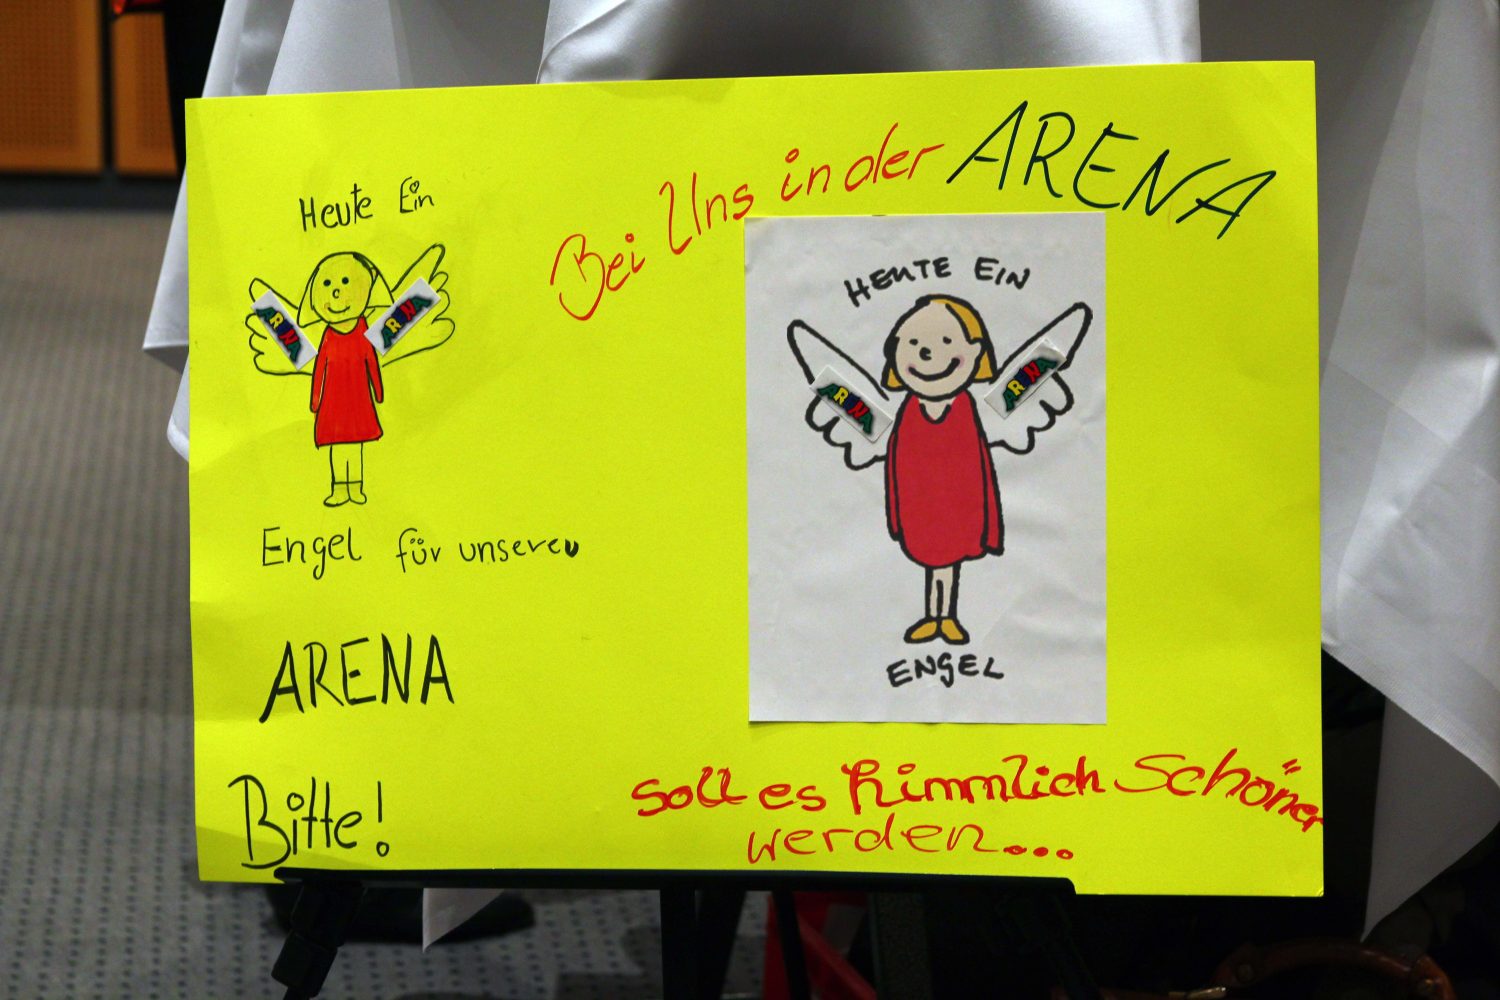 Heute Ein
ARENA ARENA
Engel für unsere
ARENA
Bitte!
Bei Uns in der ARENA
HEUTE EIN
ARENA ARENA
ENGEL
Soll es himmlich Schöner
werden...